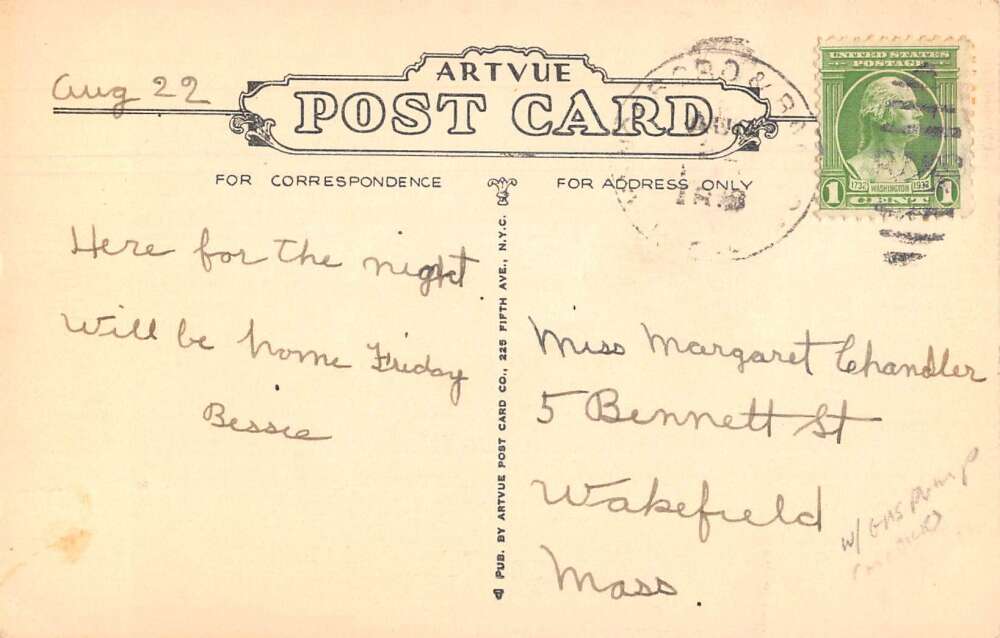 Aug 22
ARTVUE
POST CARD
FOR CORRESPONDENCE
FOR ADDRESS ONLY
UNITED STATES
POSTAGE
1732 WASHINGTON 1932
1 CENT 1
Here for the night
Will be home Friday
Bessie
PUB. BY ARTVUE POST CARD CO., 225 FIFTH AVE., N.Y.C.
Miss Margaret Chandler
5 Bennett St
Wakefield
Mass.
w/ GAS pump